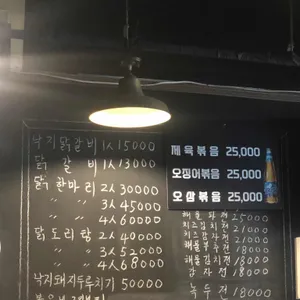 낙지닭갈비 1人 15000
닭갈비 1人 13000
닭한마리 2人 30000
〃 〃 3人 45000
〃 〃 4人 60000
닭도리탕 2人 40000
〃 3人 52000
〃 4人 68000
낙지돼지두루치기 50000
제육볶음 25,000
오징어볶음 25,000
오삼볶음 25,000
해물파전 25000
치즈김치전 21000
치즈감자전 21000
해물부추전 18000
해물김치전 18000
감자전 18000
녹두전 18000